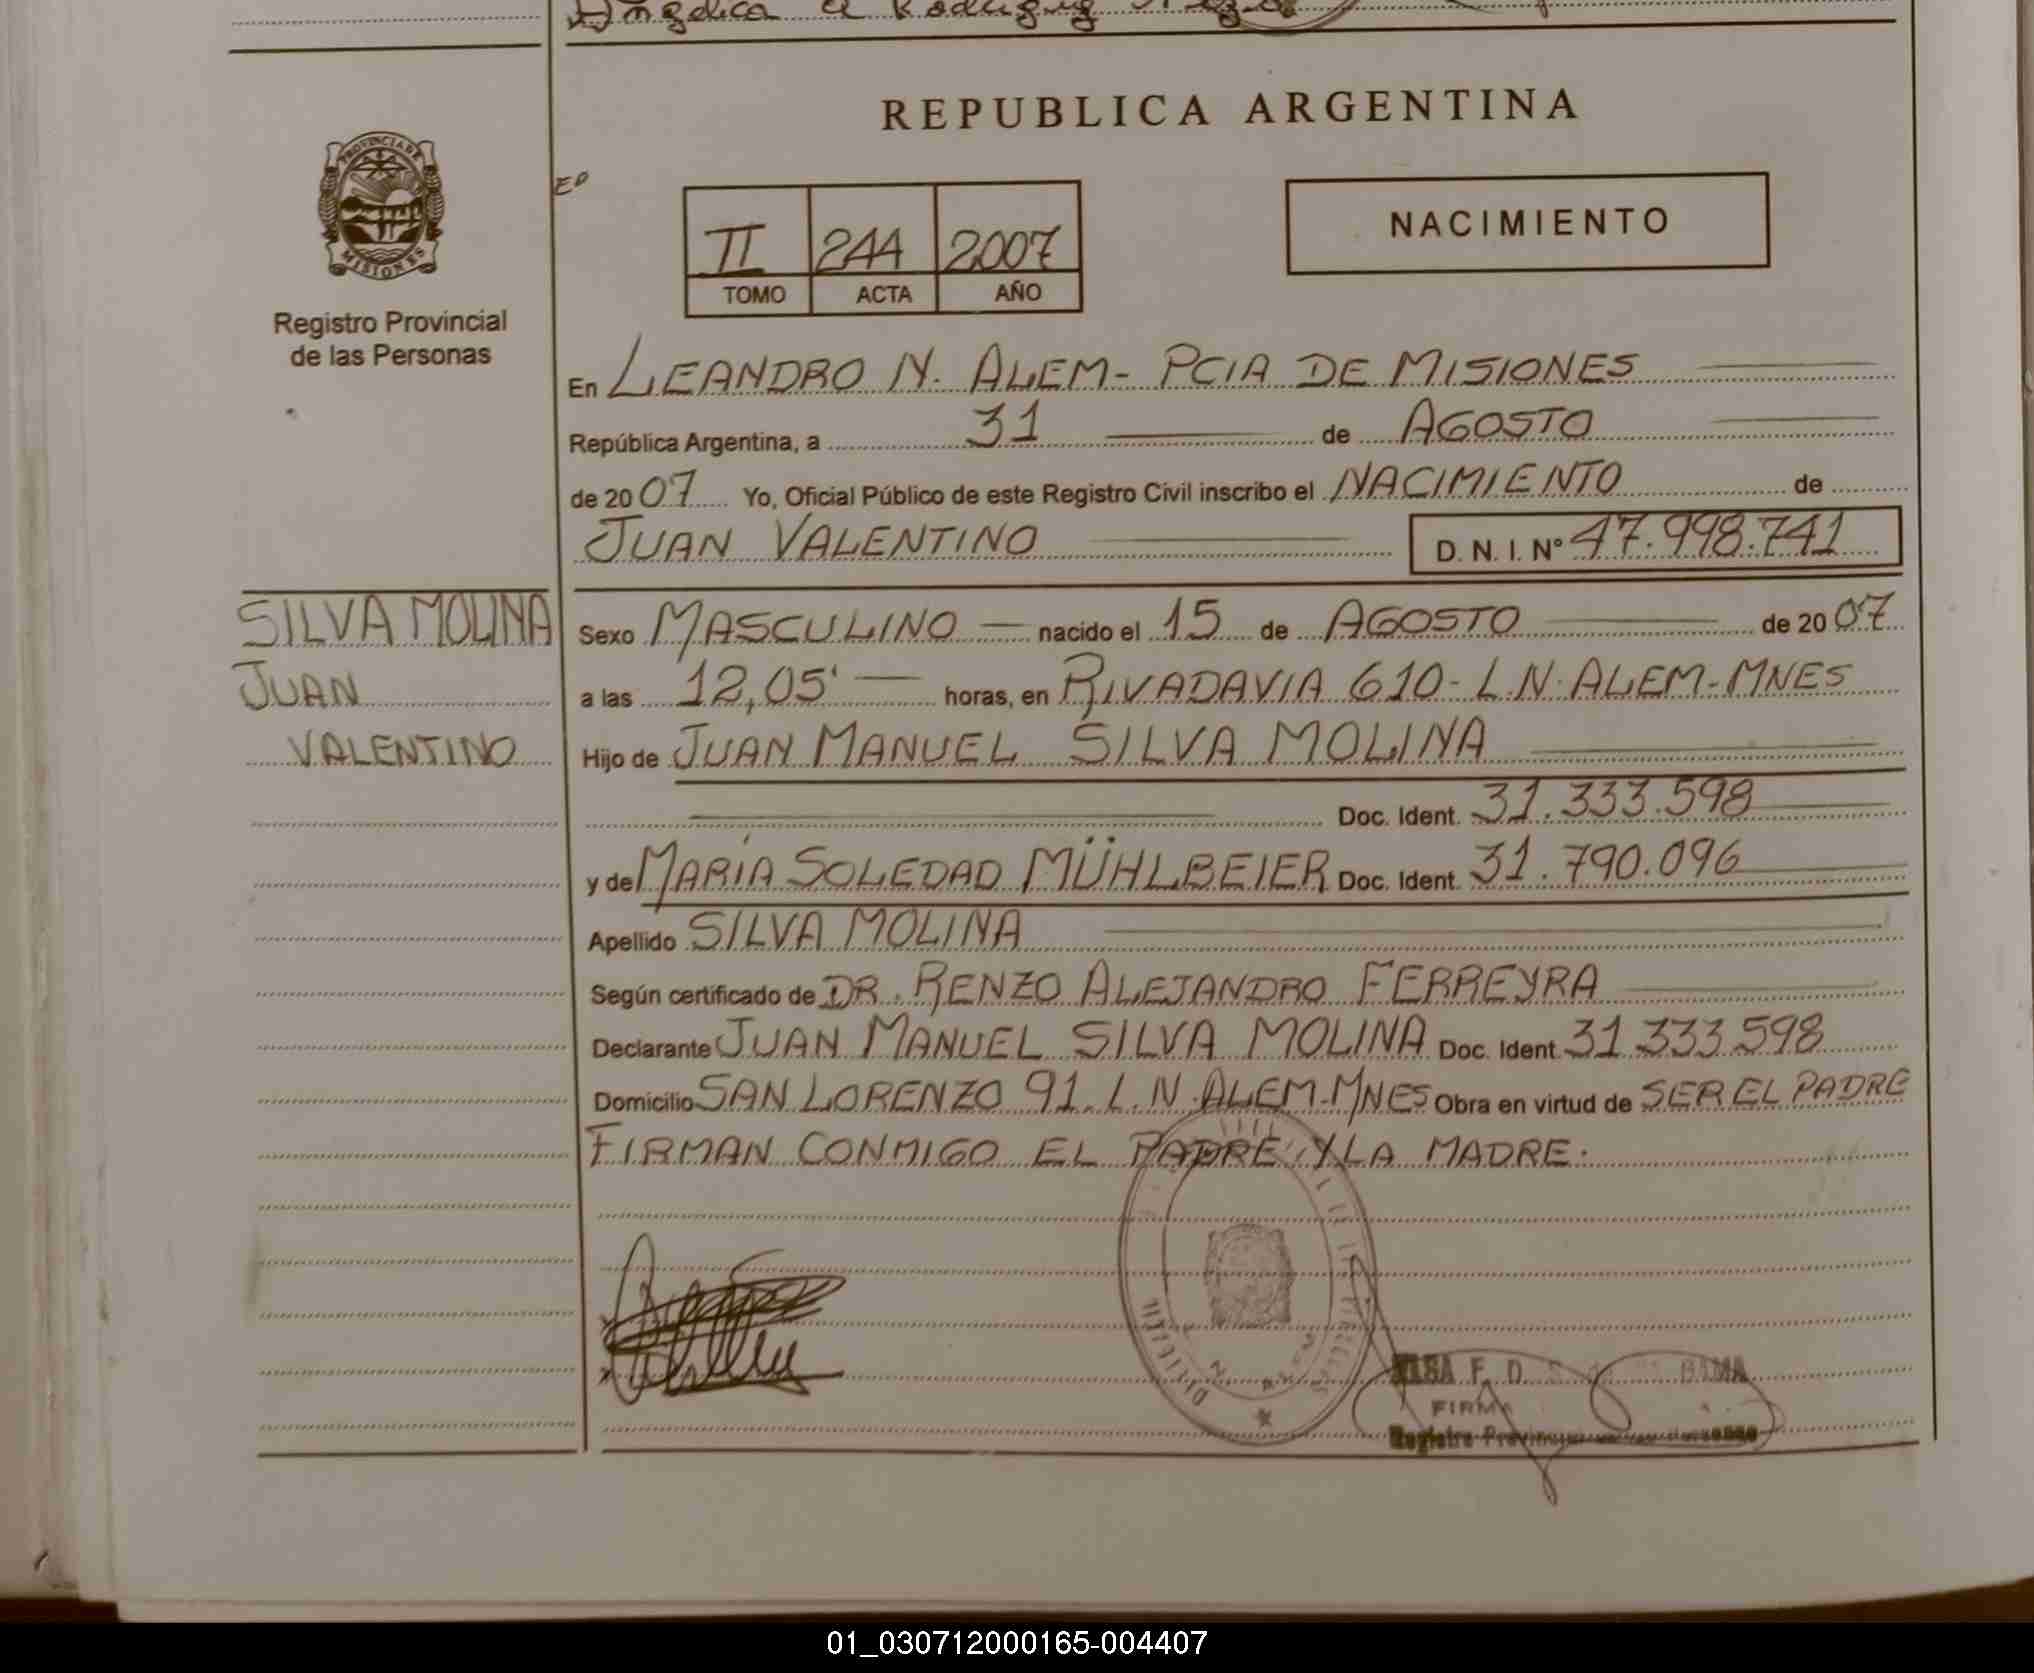 Angelica
REPUBLICA ARGENTINA
PROVINCIA DE
MISIONES
Registro Provincial
de las Personas
NACIMIENTO
II 244 2007
TOMO ACTA AÑO
En LEANDRO N. ALEM - PCIA DE MISIONES
República Argentina, a 31 de AGOSTO
de 2007 Yo, Oficial Público de este Registro Civil inscribo el NACIMIENTO de
JUAN VALENTINO D. N. I. Nº 47.998.741
SILVA MOLINA
JUAN
VALENTINO
Sexo MASCULINO nacido el 15 de AGOSTO de 2007
a las 12,05' horas, en RIVADAVIA 610 - L.N. ALEM - MNES
Hijo de JUAN MANUEL SILVA MOLINA
Doc. Ident. 31.333.598
y de MARÍA SOLEDAD MÜHLBEIER Doc. Ident. 31.790.096
Apellido SILVA MOLINA
Según certificado de DR. RENZO ALEJANDRO FERREYRA
Declarante JUAN MANUEL SILVA MOLINA Doc. Ident. 31.333.598
Domicilio SAN LORENZO 91. L.N. ALEM - MNES Obra en virtud de SER EL PADRE
FIRMAN CONMIGO EL PADRE Y LA MADRE.
FIRMA
Registro
01_030712000165-004407